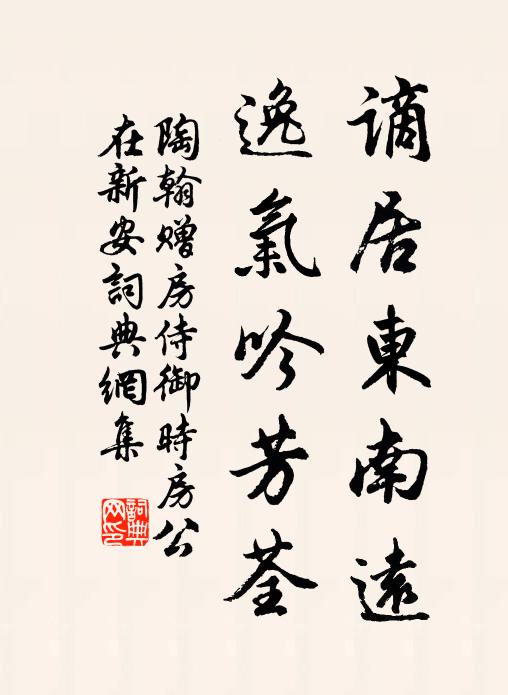 謫居東南遠
逸氣吟芳荃
陶翰贈房侍御時房公
在新安詞典網集
詞典
网印